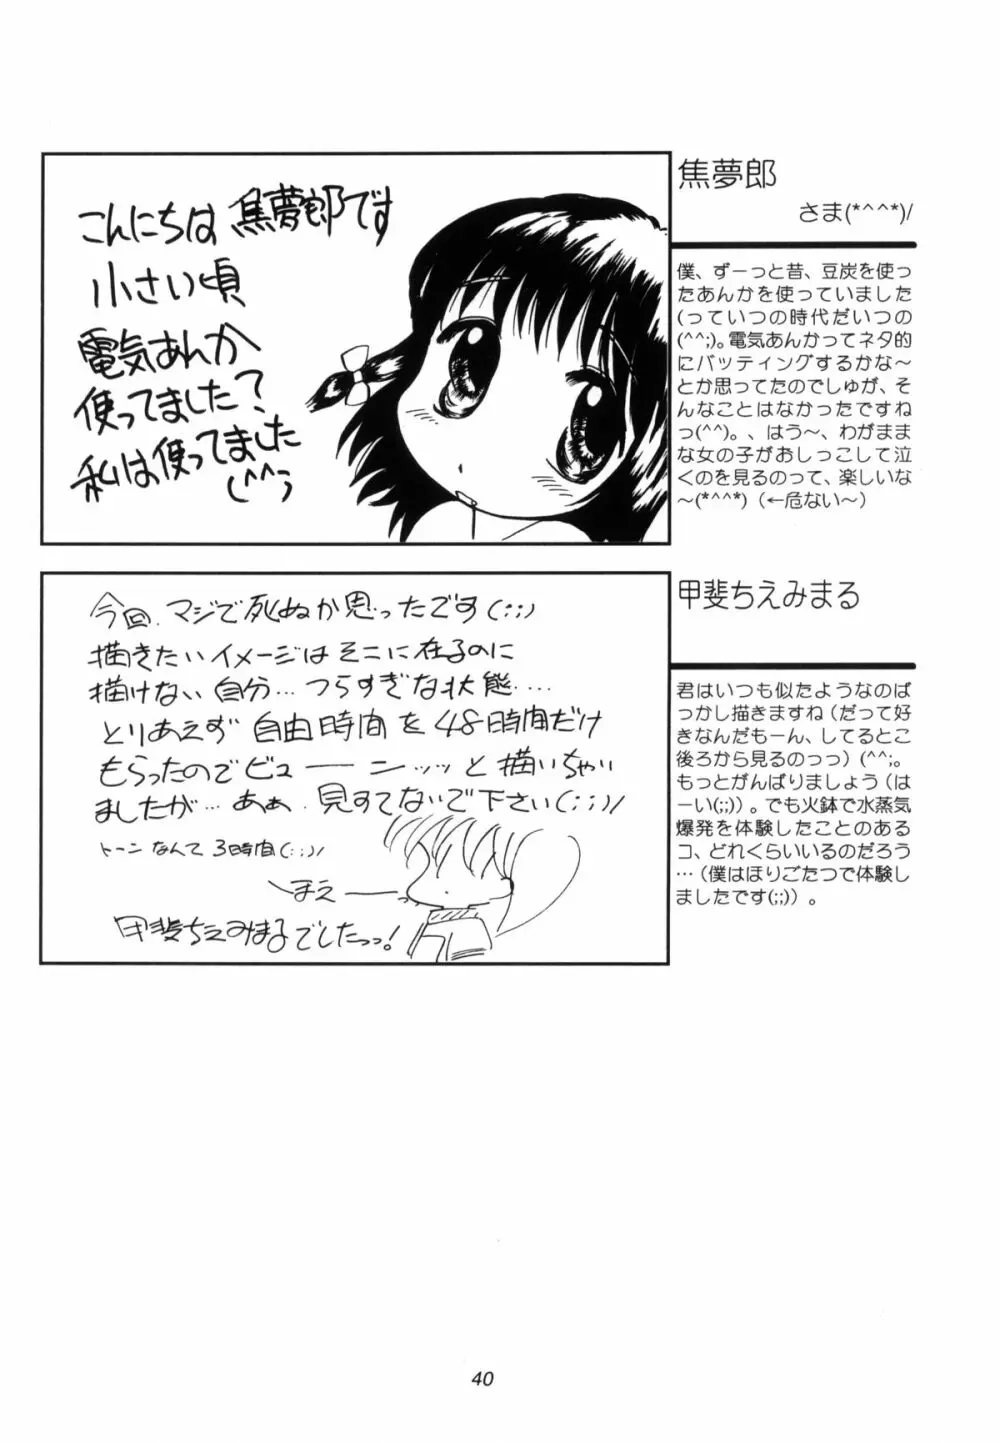 こんにちは 焦夢郎です
小さい頃
電気あんか
使ってました?
私は使ってました
(^^;)
焦夢郎
さま(*^^*)/
僕、ずーっと昔、豆炭を使っ
たあんかを使っていました
(っていつの時代だいつの
(^^;)。電気あんかってネタ的
にバッティングするかな〜
とか思ってたのでしゅが、そ
んなことはなかったですね
っ(^^)。、はう〜、わがまま
な女の子がおしっこして泣
くのを見るのって、楽しいな
〜(*^^*)（←危ない〜）
今回、マジで死ぬか思ったです(;;)
描きたいイメージはそこに在るのに
描けない自分…つらすぎな状態….
とりあえず 自由時間を48時間だけ
もらったのでビューーンッッと描いちゃい
ましたが… あぁ、見すてないで下さい(;;)/
トーンなんて3時間(;;)/
まえ
甲斐ちえみまるでしたっっ!
甲斐ちえみまる
君はいつも似たようなのば
っかし描きますね（だって好
きなんだもーん、してるとこ
後ろから見るのっっ）(^^;。
もっとがんばりましょう（は
ーい(;;)）。でも火鉢で水蒸気
爆発を体験したことのある
コ、どれくらいいるのだろう
…（僕はほりごたつで体験し
ましたです(;;)）。
40